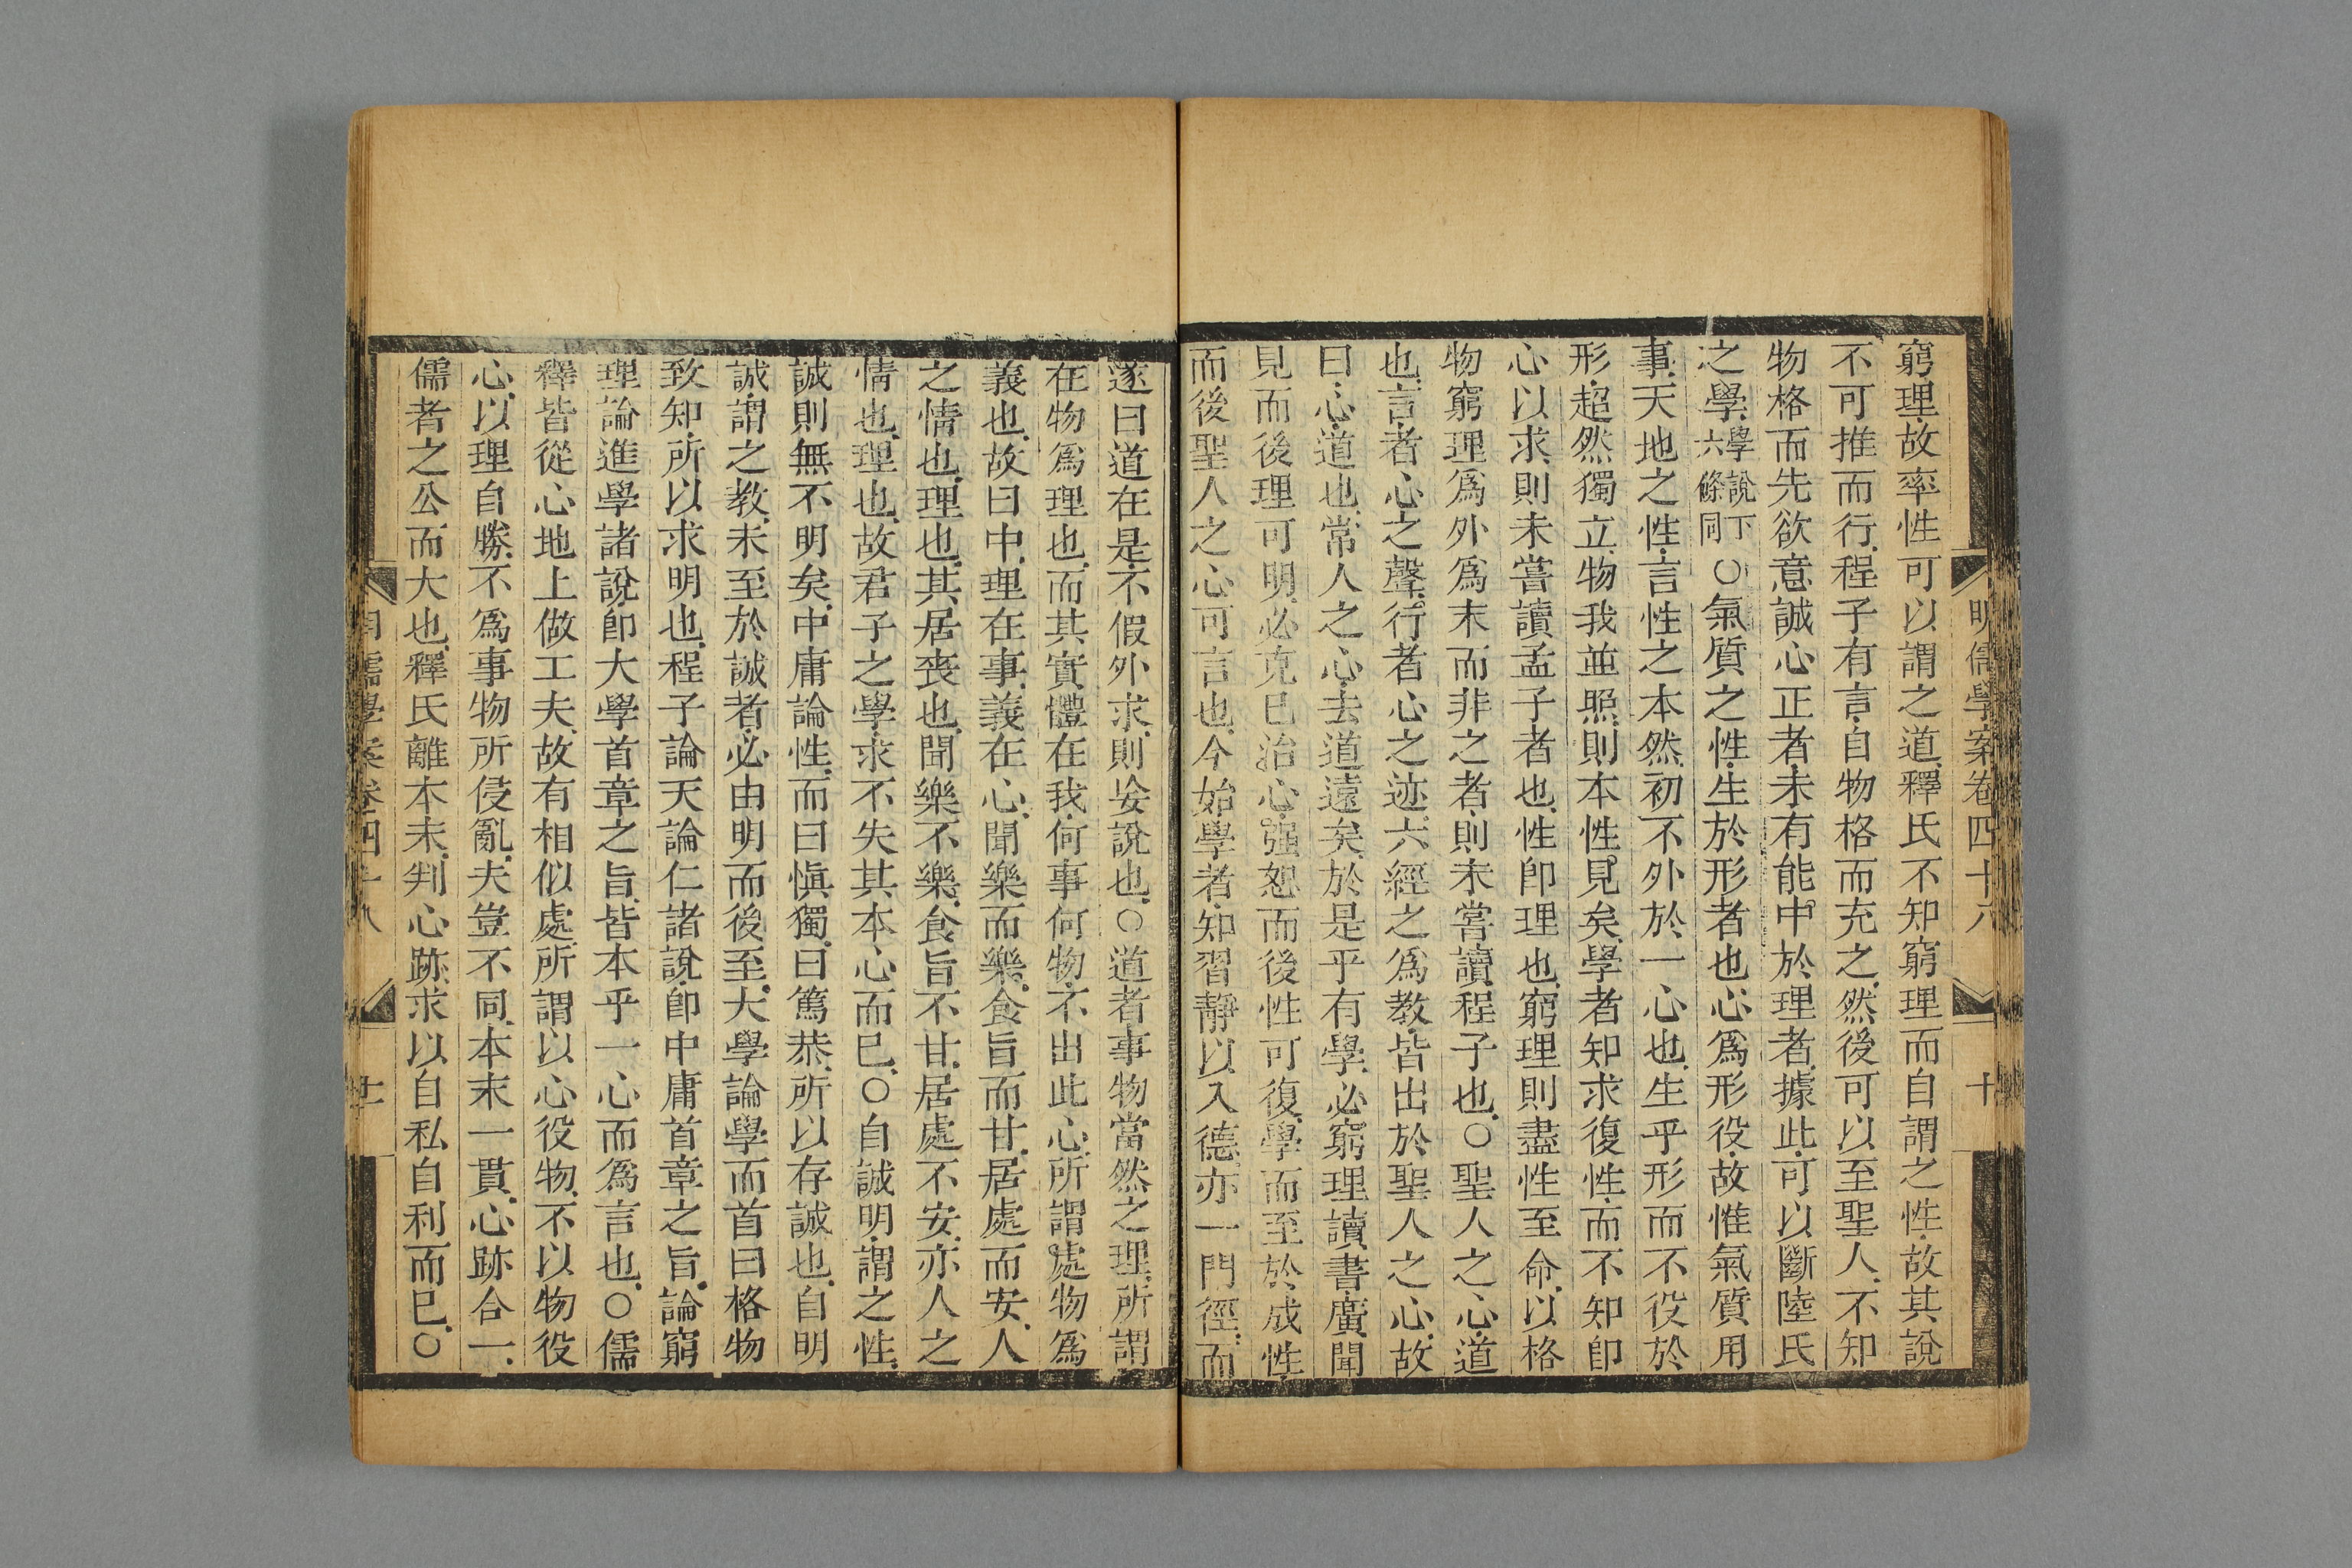 明儒學案卷四十八
十
窮理、故率性可以謂之道、釋氏不知窮理而自謂之性、故其說
不可推而行、程子有言、自物格而充之、然後可以至聖人、不知
物格而先欲意誠心正者、未有能中於理者、據此、可以斷陸氏
之學、學說下六條同○氣質之性、生於形者也、心爲形役、故惟氣質用
事、天地之性、言性之本然、初不外於一心也、生乎形而不役於
形、超然獨立、物我並照、則本性見矣、學者知求復性、而不知卽
心以求、則未嘗讀孟子者也、性卽理也、窮理則盡性至命、以格
物窮理爲外爲末而非之者、則未嘗讀程子也、○聖人之心、道
也、言者心之聲、行者心之迹、六經之爲教、皆出於聖人之心、故
曰、心、道也、常人之心、去道遠矣、於是乎有學、必窮理讀書、廣聞
見而後理可明、必克已治心、强恕而後性可復、學而至於成性、
而後聖人之心可言也、今始學者、知習靜以入德、亦一門徑、而
遂曰道在是、不假外求、則妄說也、○道者事物當然之理、所謂
在物爲理也、而其實體在我、何事何物、不出此心、所謂處物爲
義也、故曰中、理在事、義在心、聞樂而樂、食旨而甘、居處而安、人
之情也、理也、其居喪也、聞樂不樂、食旨不甘、居處不安、亦人之
情也、理也、故君子之學、求不失其本心而已、○自誠明、謂之性、
誠則無不明矣、中庸論性、而曰愼獨、曰篤恭、所以存誠也、自明
誠、謂之教、未至於誠者、必由明而後至、大學論學、而首曰格物
致知、所以求明也、程子論天論仁諸說、卽中庸首章之旨、論窮
理論進學諸說、卽大學首章之旨、皆本乎一心而爲言也、○儒
釋皆從心地上做工夫、故有相似處、所謂以心役物、不以物役
心、以理自勝、不爲事物所侵亂、夫豈不同、本末一貫、心跡合一、
儒者之公而大也、釋氏離本末、判心跡、求以自私自利而已、○
明儒學案卷四十八
十一